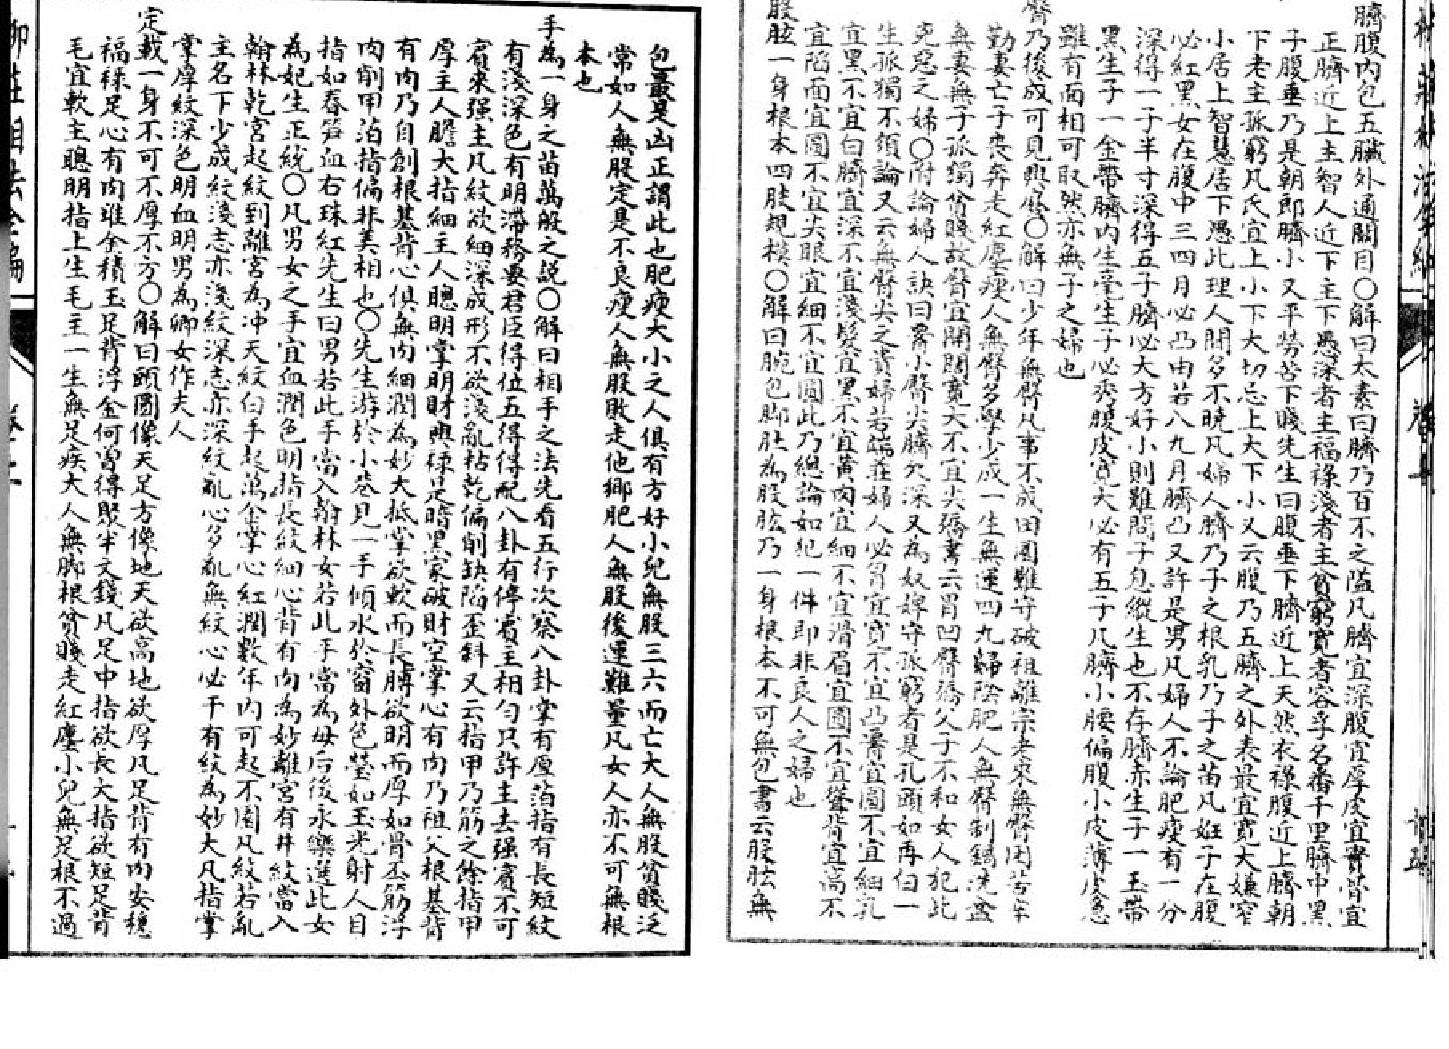 臍腹內包五臟外通關目〇解曰大素曰臍乃百不之隘凡臍宜深腹宜厚皮宜實骨宜
正臍近上主智人近下主下愚深者主福祿淺者主貧窮寬者容孚名番千里臍中黑
子腹垂乃是朝郎臍小又平勞苦下賤先生曰腹垂下臍近上天然衣祿腹近上臍朝
下老主孤窮凡氏宜上小下大切忌上大下小又云腹乃五臍之外表最宜寬大嫌窄
小居上智慧居下愚此理人間多不曉凡婦人臍乃子之根乳乃子之苗凡姙子在腹
必紅黑女在腹中三四月必凸由若八九月臍凸又許是男凡婦人不論肥瘦有一分
深得一子半寸深得五子臍必大方好小則難問子息縱生也不存臍赤生子一玉帶
黑生子一金帶臍內生毫生子必秀腹皮寬大必有五子凡臍小腰偏腹小皮薄皮急
雖有面相可取然亦無子之婦也
臀乃後成可見興發〇解曰少年無臀凡事不成田園難守破祖離宗老來無臀困苦牢
勤妻亡子喪奔走紅塵瘦人無臀多學少成一生無運四九婦陰肥人無臀制鍋洗盆
無妻無子孤獨貧賤故臀宜開闊寬大不宜尖矯書云胃凹臀蹺父子不和女人犯此
克惡之婦〇附論婦人訣曰唇小臀尖臍欠深又為奴婢守孤窮者是孔頭如再白一
生孤獨不須論又云無臀尖之貴婦若端莊婦人必宜寬不宜凸唇宜圓不宜細孔
宜黑不宜白臍宜深不宜淺髮宜黑不宜黃肉宜細不宜滑眉宜圓不宜聳背宜高不
宜陷面宜圓不宜尖眼宜細不宜圓此乃總論如犯一件即非良人之婦也
股肱一身根本四肢規模〇解曰腕包脚肚為股肱乃一身根本不可無包書云股肱無
包最是凶正謂此也肥瘦大小之人俱有方好小兒無股三六而亡大人無股貧賤泛
常如人無股定是不良瘦人無股敗走他鄉肥人無股後運難量凡女人亦不可無根
本也
手為一身之苗萬般之説〇解曰相手之法先看五行次察八卦掌有厚薄指有長短紋
有淺深色有明滯務要君臣得位五得得配八卦有停賓主相勻只許主去强賓不可
賓來强主凡紋欲細深成形不欲淺亂枯乾偏削缺陷歪斜又云指甲乃筋之餘指甲
厚主人膽大指細主人聰明掌明財興祿足暗黑家破財空掌心有肉乃祖父根基背
有肉乃自創根基背心俱無肉細潤為妙大抵掌欲軟而長膊欲明而厚如骨丕筋浮
肉削甲薄指偏非美相也〇先生游於小巷見一手傾水於窗外色瑩如玉光射人目
指如春筍血右珠紅先生曰男若此手當入翰林女若此手當為母后後永樂選此女
為妃生正統〇凡男女之手宜血潤色明指長紋細心背有肉為妙離宮有井紋當入
翰林乾宮起紋到離宮為冲天紋白手起萬金掌心紅潤數年內可起不園凡紋若亂
主名下少成紋淺志亦淺紋深志亦深紋亂心多亂無紋心必干有紋為妙大凡指掌
掌厚紋深色明血明男為卿女作夫人
定載一身不可不厚不方〇解曰頭圓像天足方像地天欲高地欲厚凡足背有肉安穩
福祿足心有肉堆金積玉足背浮金何曾得聚半文錢凡足中指欲長大指欲短足背
毛宜軟主聰明指上生毛主一生無足疾大人無脚根貧賤走紅塵小兒無足根不過